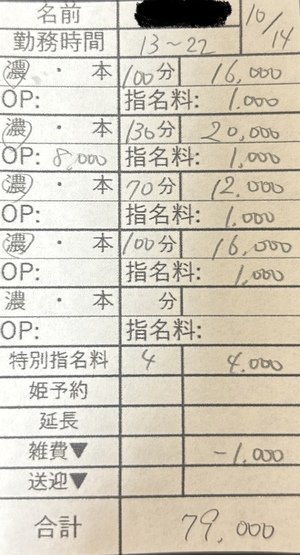 名前 10/14
勤務時間 13~22
濃・本 100分 16,000
OP: 指名料: 1,000
濃・本 130分 20,000
OP: 8,000 指名料: 1,000
濃・本 70分 12,000
OP: 指名料: 1,000
濃・本 100分 16,000
OP: 指名料: 1,000
濃・本 分
OP: 指名料:
特別指名料 4 4,000
姫予約
延長
雑費▼ -1,000
送迎▼
合計 79,000